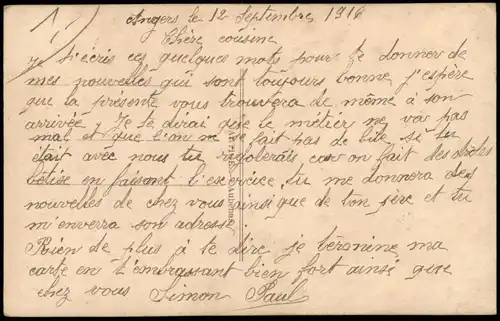 1)
Angers le 12 Septembre 1916
Chère cousine
Je t'écris ces quelques mots pour te donner de
mes nouvelles qui sont toujours bonne, j'espère
que la présente vous trouvera de même à son
arrivée, Je te dirai que le métier ne va pas
mal et que l'on ne se fait pas de bile si tu
était avec nous tu rigolerais car on fait des drôles
bêtise en faisant l'exercice, tu me donnera des
nouvelles de chez vous ainsi que de ton père et tu
m'enverra son adresse
Rien de plus à te dire je téronine ma
carte en t'embrassant bien fort ainsi que
chez vous Simon Paul